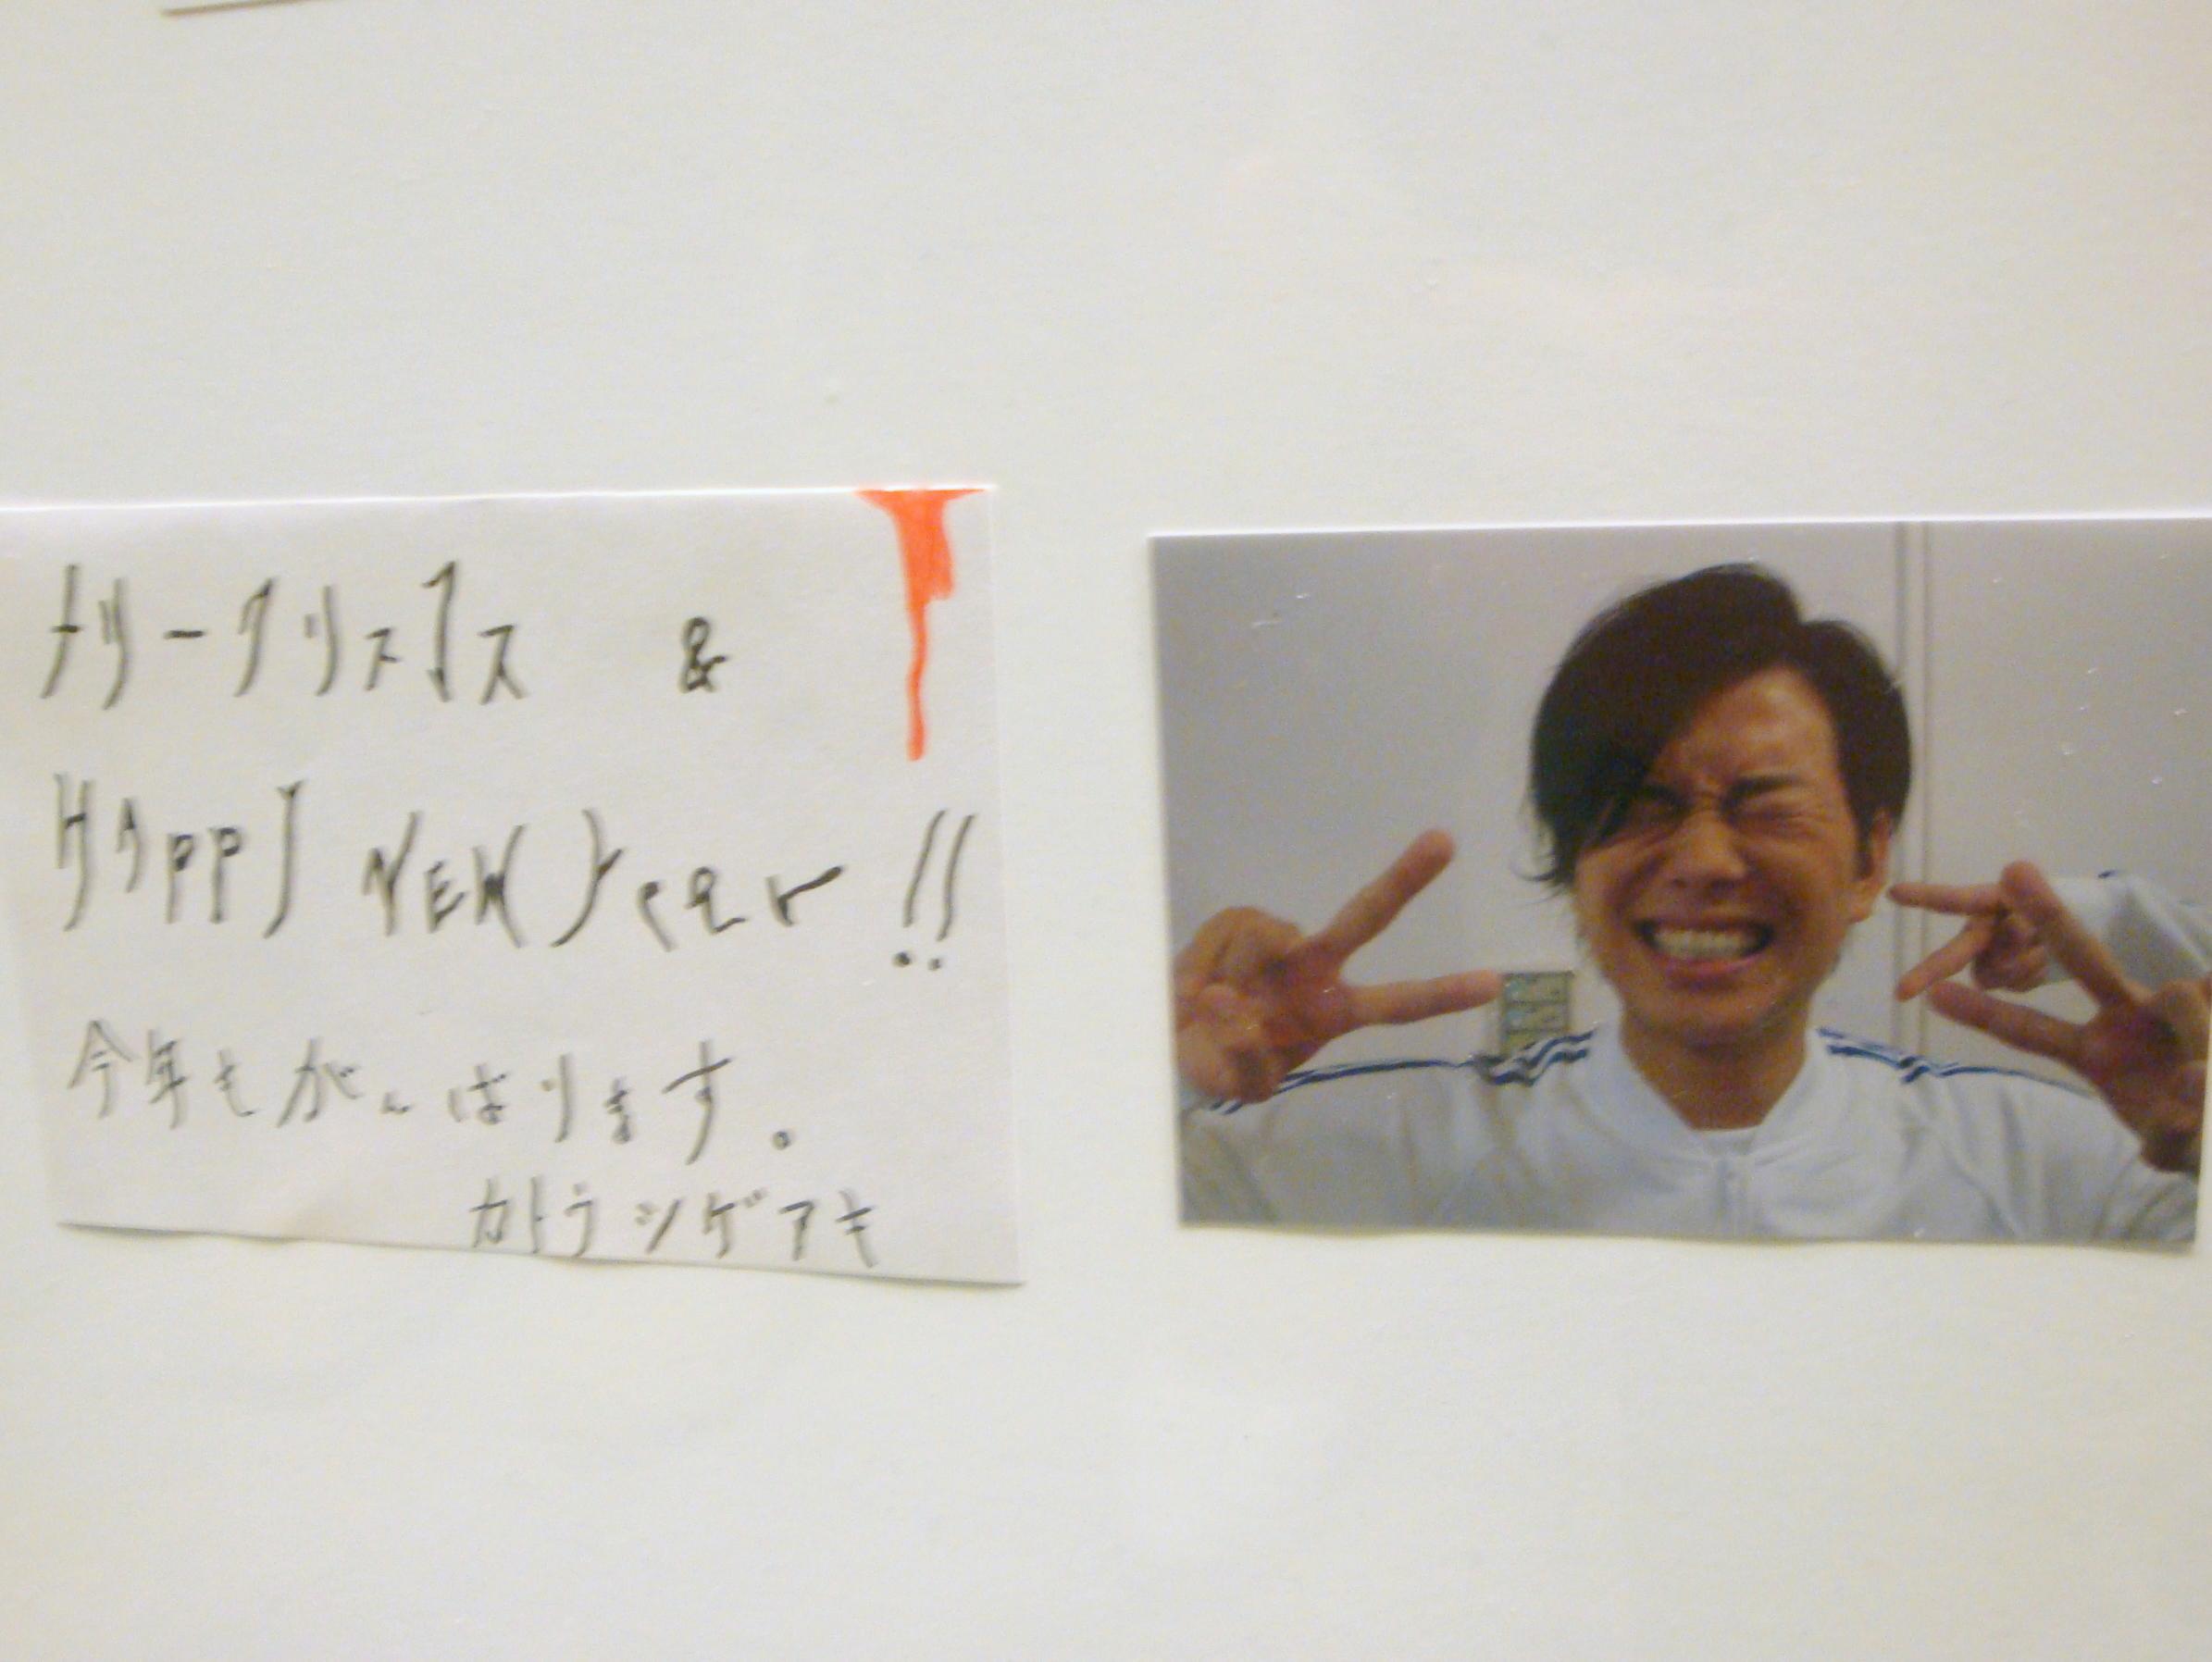 メリークリスマス &
HAppy NEW Year !!
今年もがんばります。
カトウシゲアキ